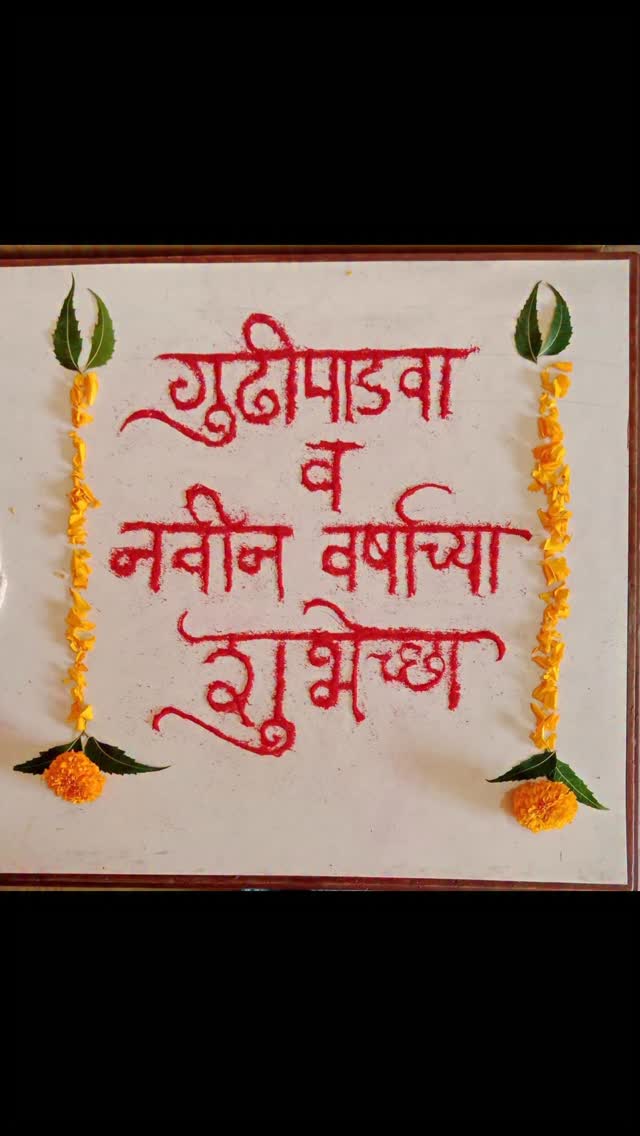 गुढीपाडवा
व
नवीन वर्षाच्या
शुभेच्छा